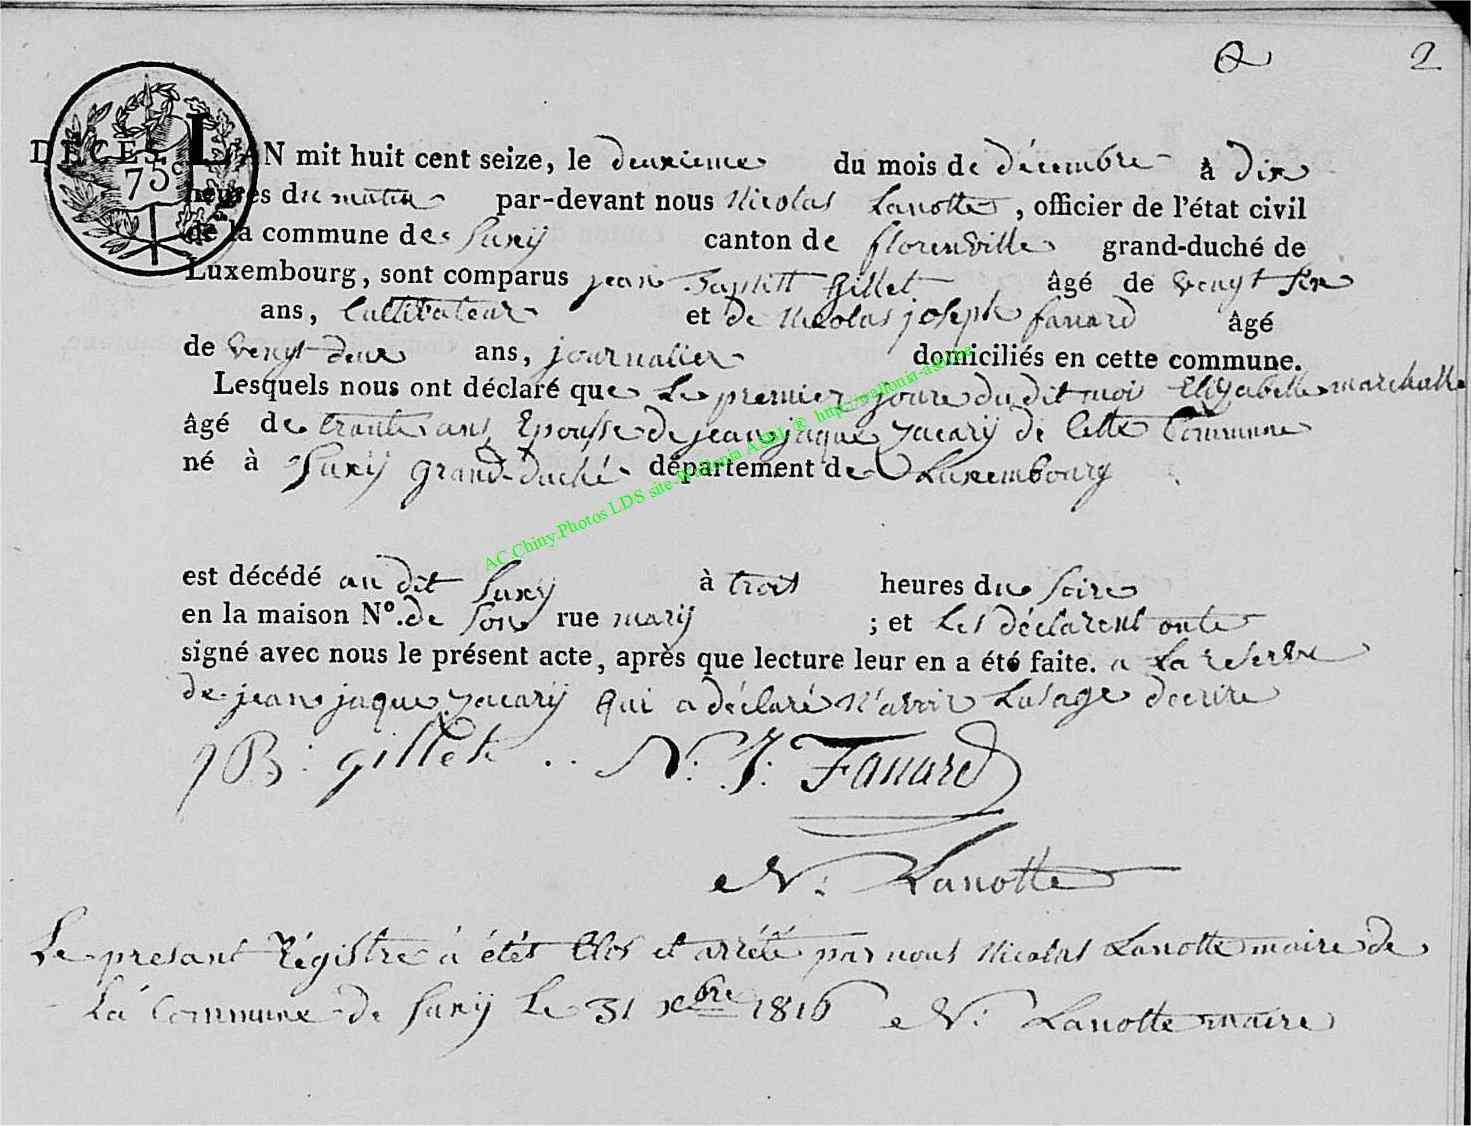 2
DÉCÈS
75c
L'AN mit huit cent seize, le deuxieme du mois de décembre à dix
heures du matin par-devant nous Nicolas Lanotte, officier de l'état civil
de la commune de Suxÿ canton de florenville grand-duché de
Luxembourg, sont comparus jean Baptitt Gillet âgé de vengt six
ans, Cultivateur et de Nicolas joseph fanard âgé
de vengt deux ans, journalier domiciliés en cette commune.
Lesquels nous ont déclaré que Le premier jour du dit moi Elisabette marchalle
âgé de trante ans Epousse de jean jaque zacarÿ de Cette Commune
né à Suxÿ grand-duché département de Luxembourg
AC Chiny.Photos LDS site Wallonia ASBL ® http://wallonia-asbl.be
est décédé au dit Suxÿ à trois heures du soire
en la maison N°. de son rue marÿ ; et Les déclarent onte
signé avec nous le présent acte, après que lecture leur en a été faite. a La reserve
de jean jaque zacarÿ qui a déclaré n'avoir Lusage decrire
JB: gillet .. N: J: Fanard
N: Lanotte
Le presant Régistre à étés Clos et arrété par nous Nicolas Lanotte maire de
La Commune de Suxÿ Le 31 xbre 1816 N: Lanotte maire